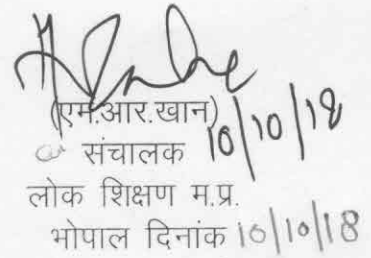 (एम.आर.खान) 10/10/18
संचालक
लोक शिक्षण म.प्र.
भोपाल दिनांक 10/10/18